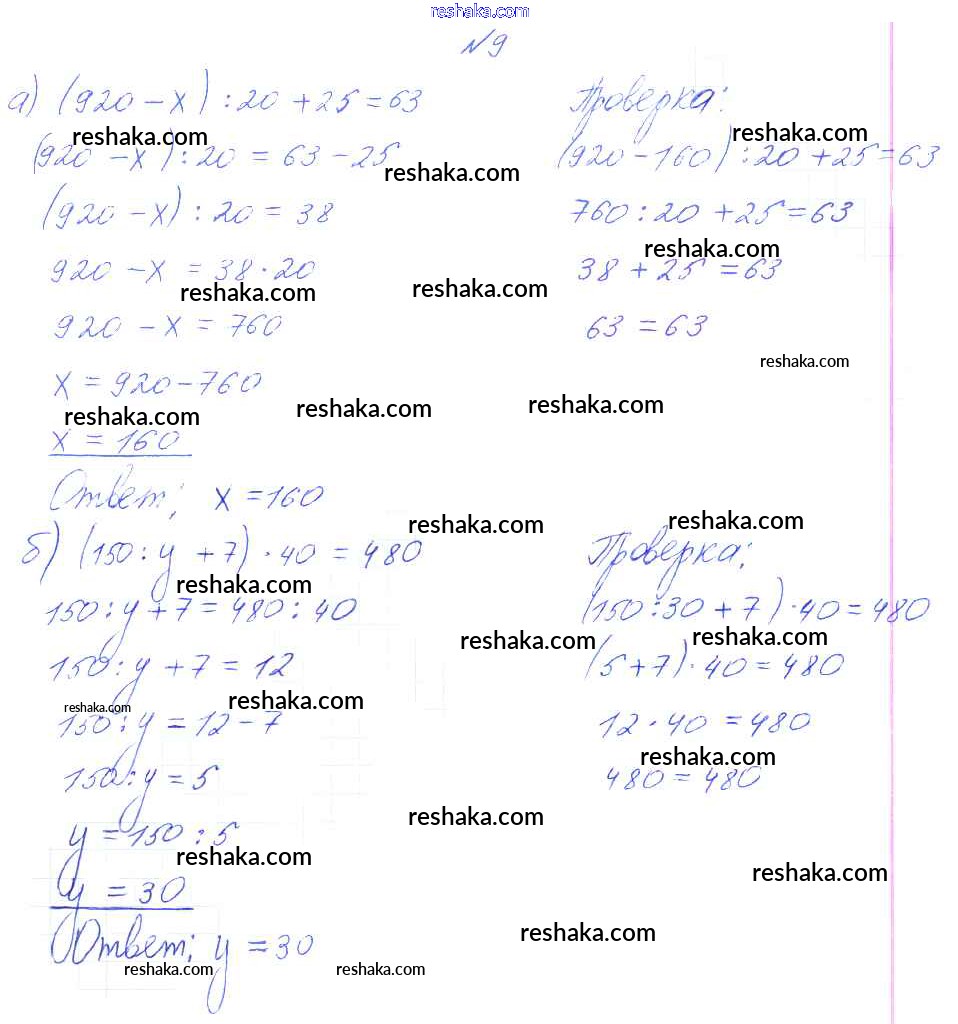 reshaka.com
№9
а) (920 - x) : 20 + 25 = 63
reshaka.com
(920 - x) : 20 = 63 - 25
reshaka.com
(920 - x) : 20 = 38
920 - x = 38 · 20
reshaka.com
reshaka.com
920 - x = 760
x = 920 - 760
reshaka.com
reshaka.com
x = 160
Ответ: x = 160
reshaka.com
Проверка:
reshaka.com
(920 - 160) : 20 + 25 = 63
760 : 20 + 25 = 63
reshaka.com
38 + 25 = 63
63 = 63
reshaka.com
reshaka.com
б) (150 : y + 7) · 40 = 480
reshaka.com
150 : y + 7 = 480 : 40
reshaka.com
150 : y + 7 = 12
reshaka.com
reshaka.com
150 : y = 12 - 7
150 : y = 5
reshaka.com
y = 150 : 5
reshaka.com
y = 30
Ответ: y = 30
reshaka.com
reshaka.com
reshaka.com
Проверка:
(150 : 30 + 7) · 40 = 480
reshaka.com
(5 + 7) · 40 = 480
12 · 40 = 480
reshaka.com
480 = 480
reshaka.com
reshaka.com